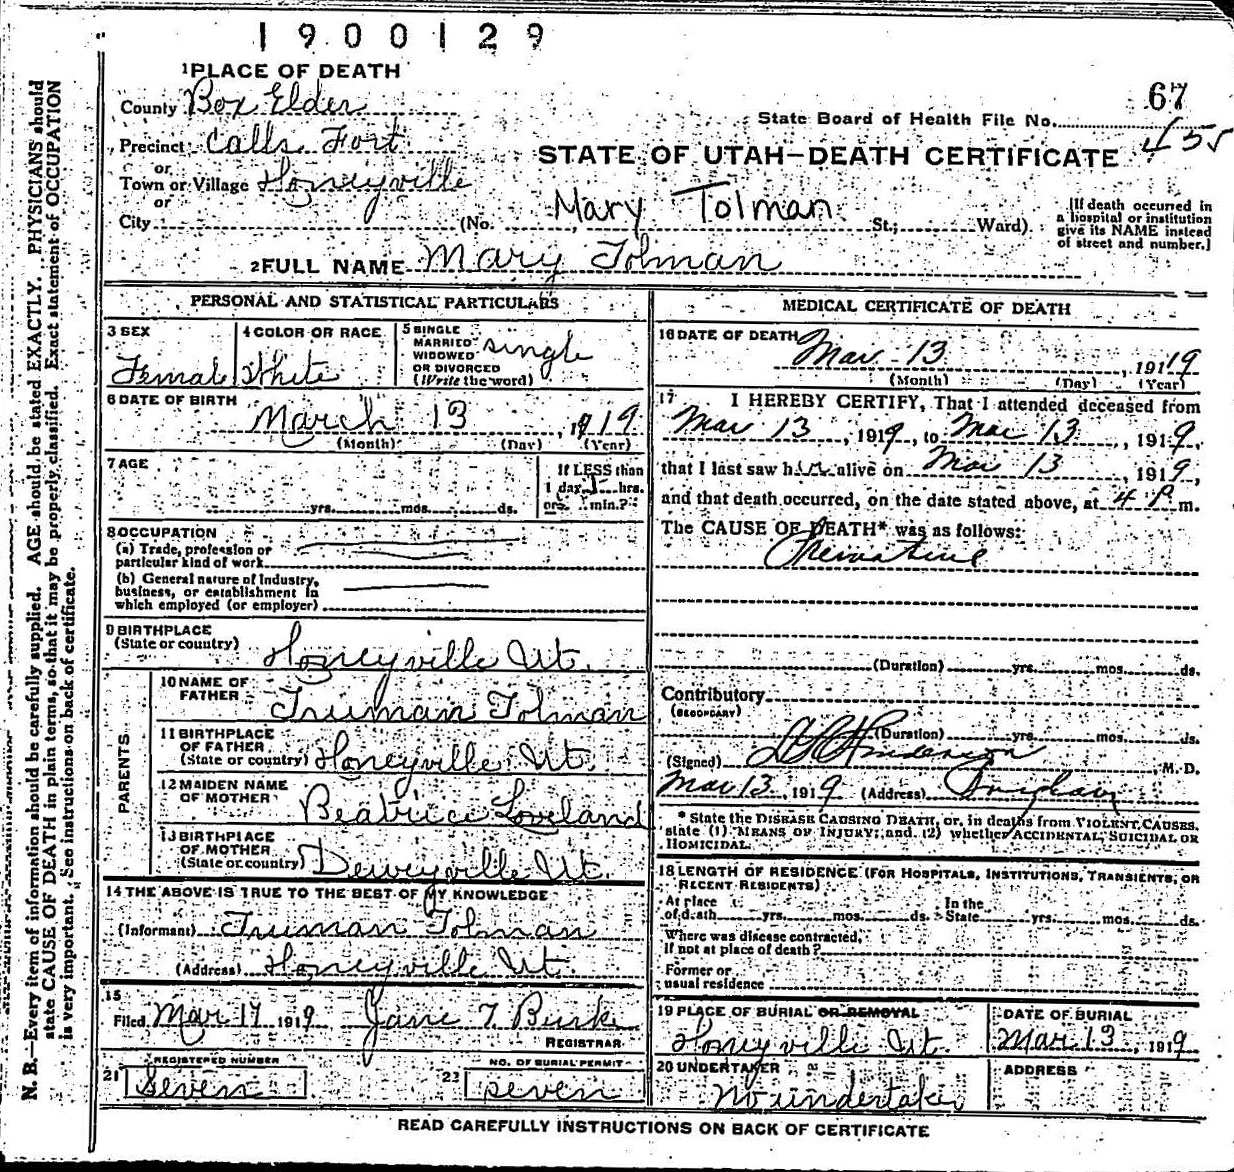 1900129
1 PLACE OF DEATH
County Box Elder
67
State Board of Health File No. 455
Precinct Calls Fort
or
Town or Village Honeyville
STATE OF UTAH—DEATH CERTIFICATE
or
City (No. Mary Tolman St.; Ward)
[If death occurred in
a hospital or institution
give its NAME instead
of street and number.]
2 FULL NAME Mary Tolman
PERSONAL AND STATISTICAL PARTICULARS
3 SEX
Female
4 COLOR OR RACE
White
5 SINGLE
MARRIED
WIDOWED
OR DIVORCED
(Write the word)
single
6 DATE OF BIRTH
March 13, 1919
(Month) (Day) (Year)
7 AGE
yrs. mos. ds.
If LESS than
1 day, hrs.
or min.?
8 OCCUPATION
(a) Trade, profession or
particular kind of work
(b) General nature of Industry,
business, or establishment in
which employed (or employer)
9 BIRTHPLACE
(State or country) Honeyville Ut.
PARENTS
10 NAME OF
FATHER Truman Tolman
11 BIRTHPLACE
OF FATHER
(State or country) Honeyville Ut.
12 MAIDEN NAME
OF MOTHER Beatrice Loveland
13 BIRTHPLACE
OF MOTHER
(State or country) Deweyville Ut.
14 THE ABOVE IS TRUE TO THE BEST OF MY KNOWLEDGE
(Informant) Truman Tolman
(Address) Honeyville Ut.
15
Filed, Mar 17 1919 Jane T Burke
REGISTRAR
REGISTERED NUMBER
21 Seven
NO. OF BURIAL PERMIT
22 seven
MEDICAL CERTIFICATE OF DEATH
16 DATE OF DEATH
Mar 13, 1919
(Month) (Day) (Year)
17 I HEREBY CERTIFY, That I attended deceased from
Mar 13, 1919, to Mar 13, 1919,
that I last saw h alive on Mar 13, 1919,
and that death occurred, on the date stated above, at 4 P m.
The CAUSE OF DEATH* was as follows:
Premature
(Duration) yrs. mos. ds.
Contributory
(SECONDARY)
(Duration) yrs. mos. ds.
(Signed) Anderson, M. D.
Mar 13, 1919 (Address) Brigham
* State the DISEASE CAUSING DEATH, or, in deaths from VIOLENT CAUSES,
state (1) MEANS OF INJURY; and (2) whether ACCIDENTAL, SUICIDAL OR
HOMICIDAL.
18 LENGTH OF RESIDENCE (FOR HOSPITALS, INSTITUTIONS, TRANSIENTS, OR
RECENT RESIDENTS)
At place
of death yrs. mos. ds.
In the
State yrs. mos. ds.
Where was disease contracted,
If not at place of death?
Former or
usual residence
19 PLACE OF BURIAL OR REMOVAL
Honeyville Ut.
DATE OF BURIAL
Mar 13, 1919
20 UNDERTAKER
No undertaker
ADDRESS
READ CAREFULLY INSTRUCTIONS ON BACK OF CERTIFICATE
N. B.—Every item of information should be carefully supplied. AGE should be stated EXACTLY. PHYSICIANS should
state CAUSE OF DEATH in plain terms, so that it may be properly classified. Exact statement of OCCUPATION
is very important. See instructions on back of certificate.